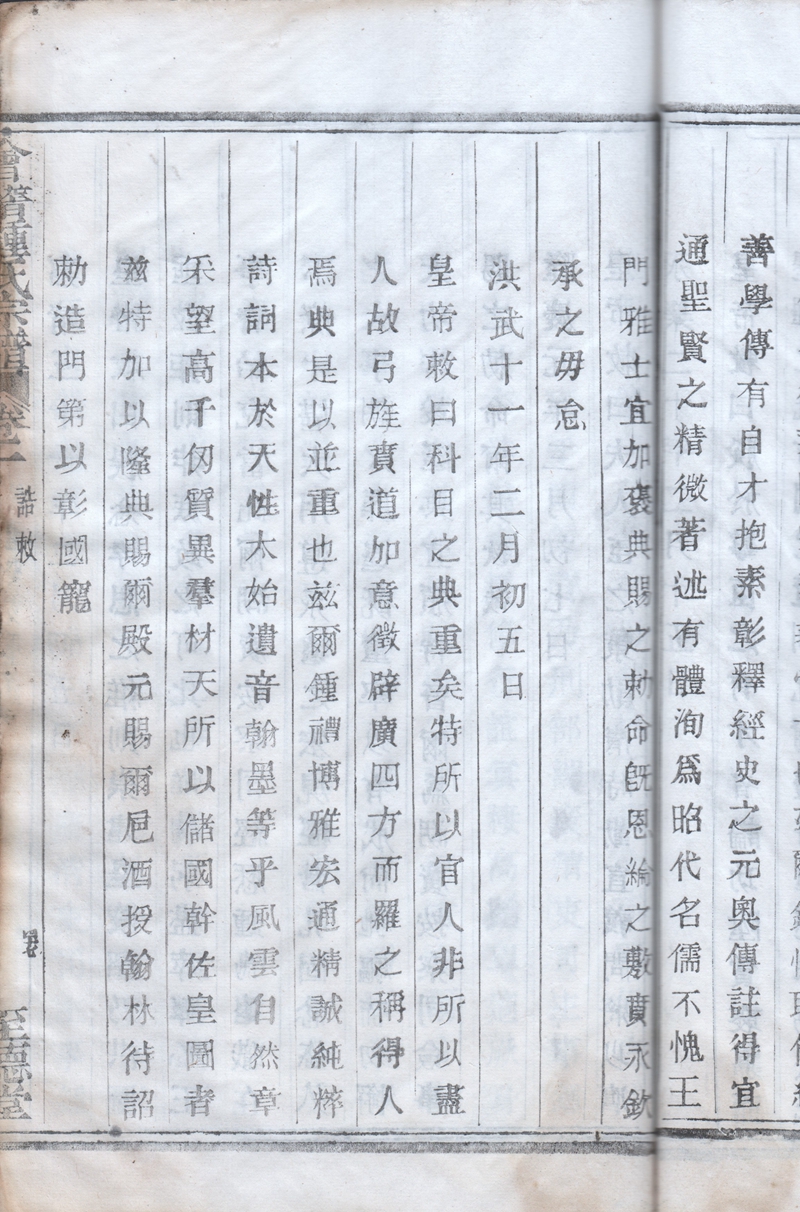 善學傳有自才抱素彰釋經史之元奧傳註得宜
通聖賢之精微著述有體洵爲昭代名儒不愧王
門雅士宜加褒典賜之勅命旣恩綸之敷賁永欽
承之毋怠
洪武十一年二月初五日
皇帝敕曰科目之典重矣特所以官人非所以盡
人故弓旌賁道加意徵辟廣四方而羅之稱得人
焉典是以並重也玆爾鍾禮博雅宏通精誠純粹
詩詞本於天性太始遺音翰墨等乎風雲自然章
采望高千仭質異羣材天所以儲國幹佐皇圖者
玆特加以隆典賜爾殿元賜爾巵酒授翰林待詔
勅造門第以彰國寵
會稽鍾氏宗譜 卷之一 誥敕 至德堂